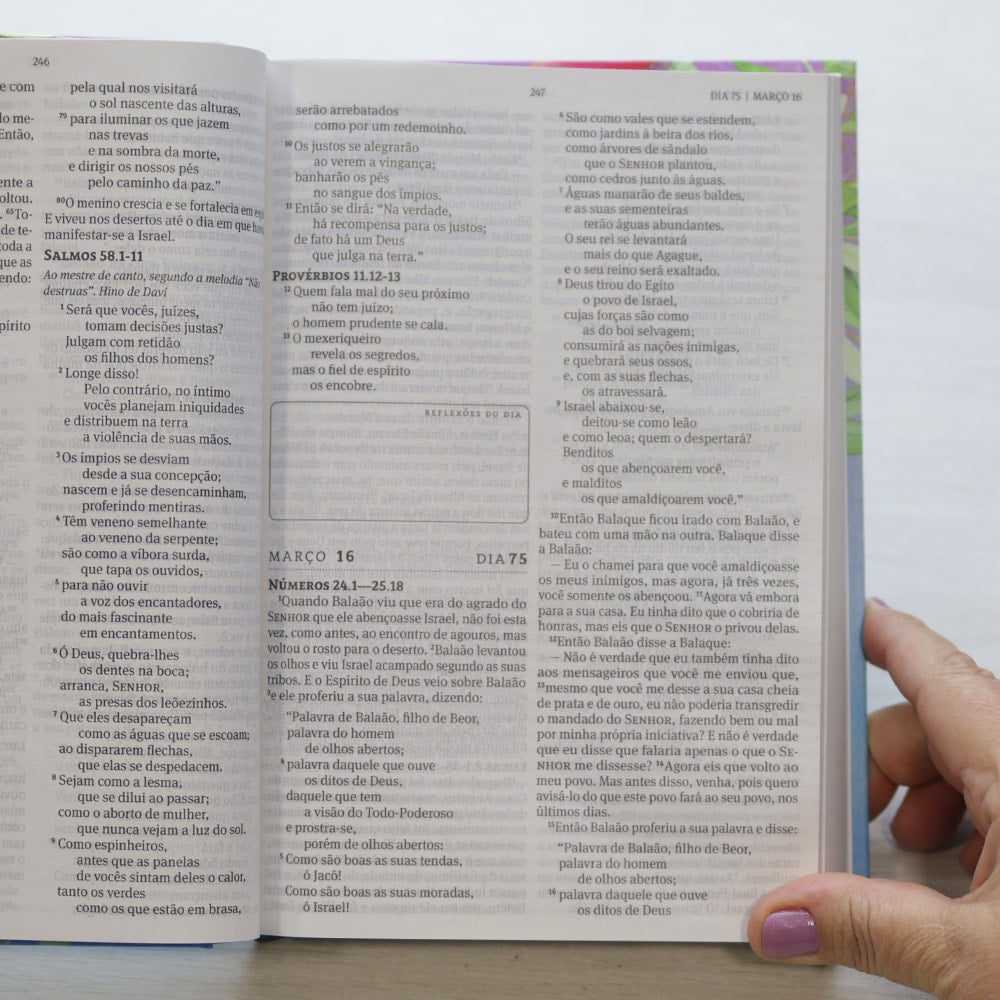 246
e com
lo me-
Então,
ente a
oltou.
. ⁶⁵To-
de te-
toda a
que as
endo:
pírito
pela qual nos visitará
o sol nascente das alturas,
⁷⁹ para iluminar os que jazem
nas trevas
e na sombra da morte,
e dirigir os nossos pés
pelo caminho da paz.”
⁸⁰O menino crescia e se fortalecia em
E viveu nos desertos até o dia em que
manifestar-se a Israel.
SALMOS 58.1-11
Ao mestre de canto, segundo a melodia “Não
destruas”. Hino de Davi
¹ Será que vocês, juízes,
tomam decisões justas?
Julgam com retidão
os filhos dos homens?
² Longe disso!
Pelo contrário, no íntimo
vocês planejam iniquidades
e distribuem na terra
a violência de suas mãos.
³ Os ímpios se desviam
desde a sua concepção;
nascem e já se desencaminham,
proferindo mentiras.
⁴ Têm veneno semelhante
ao veneno da serpente;
são como a víbora surda,
que tapa os ouvidos,
⁵ para não ouvir
a voz dos encantadores,
do mais fascinante
em encantamentos.
⁶ Ó Deus, quebra-lhes
os dentes na boca;
arranca, SENHOR,
as presas dos leõezinhos.
⁷ Que eles desapareçam
como as águas que se escoam;
ao dispararem flechas,
que elas se despedacem.
⁸ Sejam como a lesma,
que se dilui ao passar;
como o aborto de mulher,
que nunca vejam a luz do sol.
⁹ Como espinheiros,
antes que as panelas
de vocês sintam deles o calor,
tanto os verdes
como os que estão em brasa,
247
DIA 75 | MARÇO 16
serão arrebatados
como por um redemoinho.
¹⁰ Os justos se alegrarão
ao verem a vingança;
banharão os pés
no sangue dos ímpios.
¹¹ Então se dirá: “Na verdade,
há recompensa para os justos;
de fato há um Deus
que julga na terra.”
PROVÉRBIOS 11.12-13
¹² Quem fala mal do seu próximo
não tem juízo;
o homem prudente se cala.
¹³ O mexeriqueiro
revela os segredos,
mas o fiel de espírito
os encobre.
REFLEXÕES DO DIA
MARÇO 16 DIA 75
NÚMEROS 24.1—25.18
¹Quando Balaão viu que era do agrado do
SENHOR que ele abençoasse Israel, não foi esta
vez, como antes, ao encontro de agouros, mas
voltou o rosto para o deserto. ²Balaão levantou
os olhos e viu Israel acampado segundo as suas
tribos. E o Espírito de Deus veio sobre Balaão
³e ele proferiu a sua palavra, dizendo:
“Palavra de Balaão, filho de Beor,
palavra do homem
de olhos abertos;
⁴ palavra daquele que ouve
os ditos de Deus,
daquele que tem
a visão do Todo-Poderoso
e prostra-se,
porém de olhos abertos:
⁵ Como são boas as suas tendas,
ó Jacó!
Como são boas as suas moradas,
ó Israel!
⁶ São como vales que se estendem,
como jardins à beira dos rios,
como árvores de sândalo
que o SENHOR plantou,
como cedros junto às águas.
⁷ Águas manarão de seus baldes,
e as suas sementeiras
terão águas abundantes.
O seu rei se levantará
mais do que Agague,
e o seu reino será exaltado.
⁸ Deus tirou do Egito
o povo de Israel,
cujas forças são como
as do boi selvagem;
consumirá as nações inimigas,
e quebrará seus ossos,
e, com as suas flechas,
os atravessará.
⁹ Israel abaixou-se,
deitou-se como leão
e como leoa; quem o despertará?
Benditos
os que abençoarem você,
e malditos
os que amaldiçoarem você.”
¹⁰Então Balaque ficou irado com Balaão, e
bateu com uma mão na outra. Balaque disse
a Balaão:
— Eu o chamei para que você amaldiçoasse
os meus inimigos, mas agora, já três vezes,
você somente os abençoou. ¹¹Agora vá embora
para a sua casa. Eu tinha dito que o cobriria de
honras, mas eis que o SENHOR o privou delas.
¹²Então Balaão disse a Balaque:
— Não é verdade que eu também tinha dito
aos mensageiros que você me enviou que,
¹³mesmo que você me desse a sua casa cheia
de prata e de ouro, eu não poderia transgredir
o mandado do SENHOR, fazendo bem ou mal
por minha própria iniciativa? E não é verdade
que eu disse que falaria apenas o que o SE-
NHOR me dissesse? ¹⁴Agora eis que volto ao
meu povo. Mas antes disso, venha, pois quero
avisá-lo do que este povo fará ao seu povo, nos
últimos dias.
¹⁵Então Balaão proferiu a sua palavra e disse:
“Palavra de Balaão, filho de Beor,
palavra do homem
de olhos abertos;
¹⁶ palavra daquele que ouve
os ditos de Deus